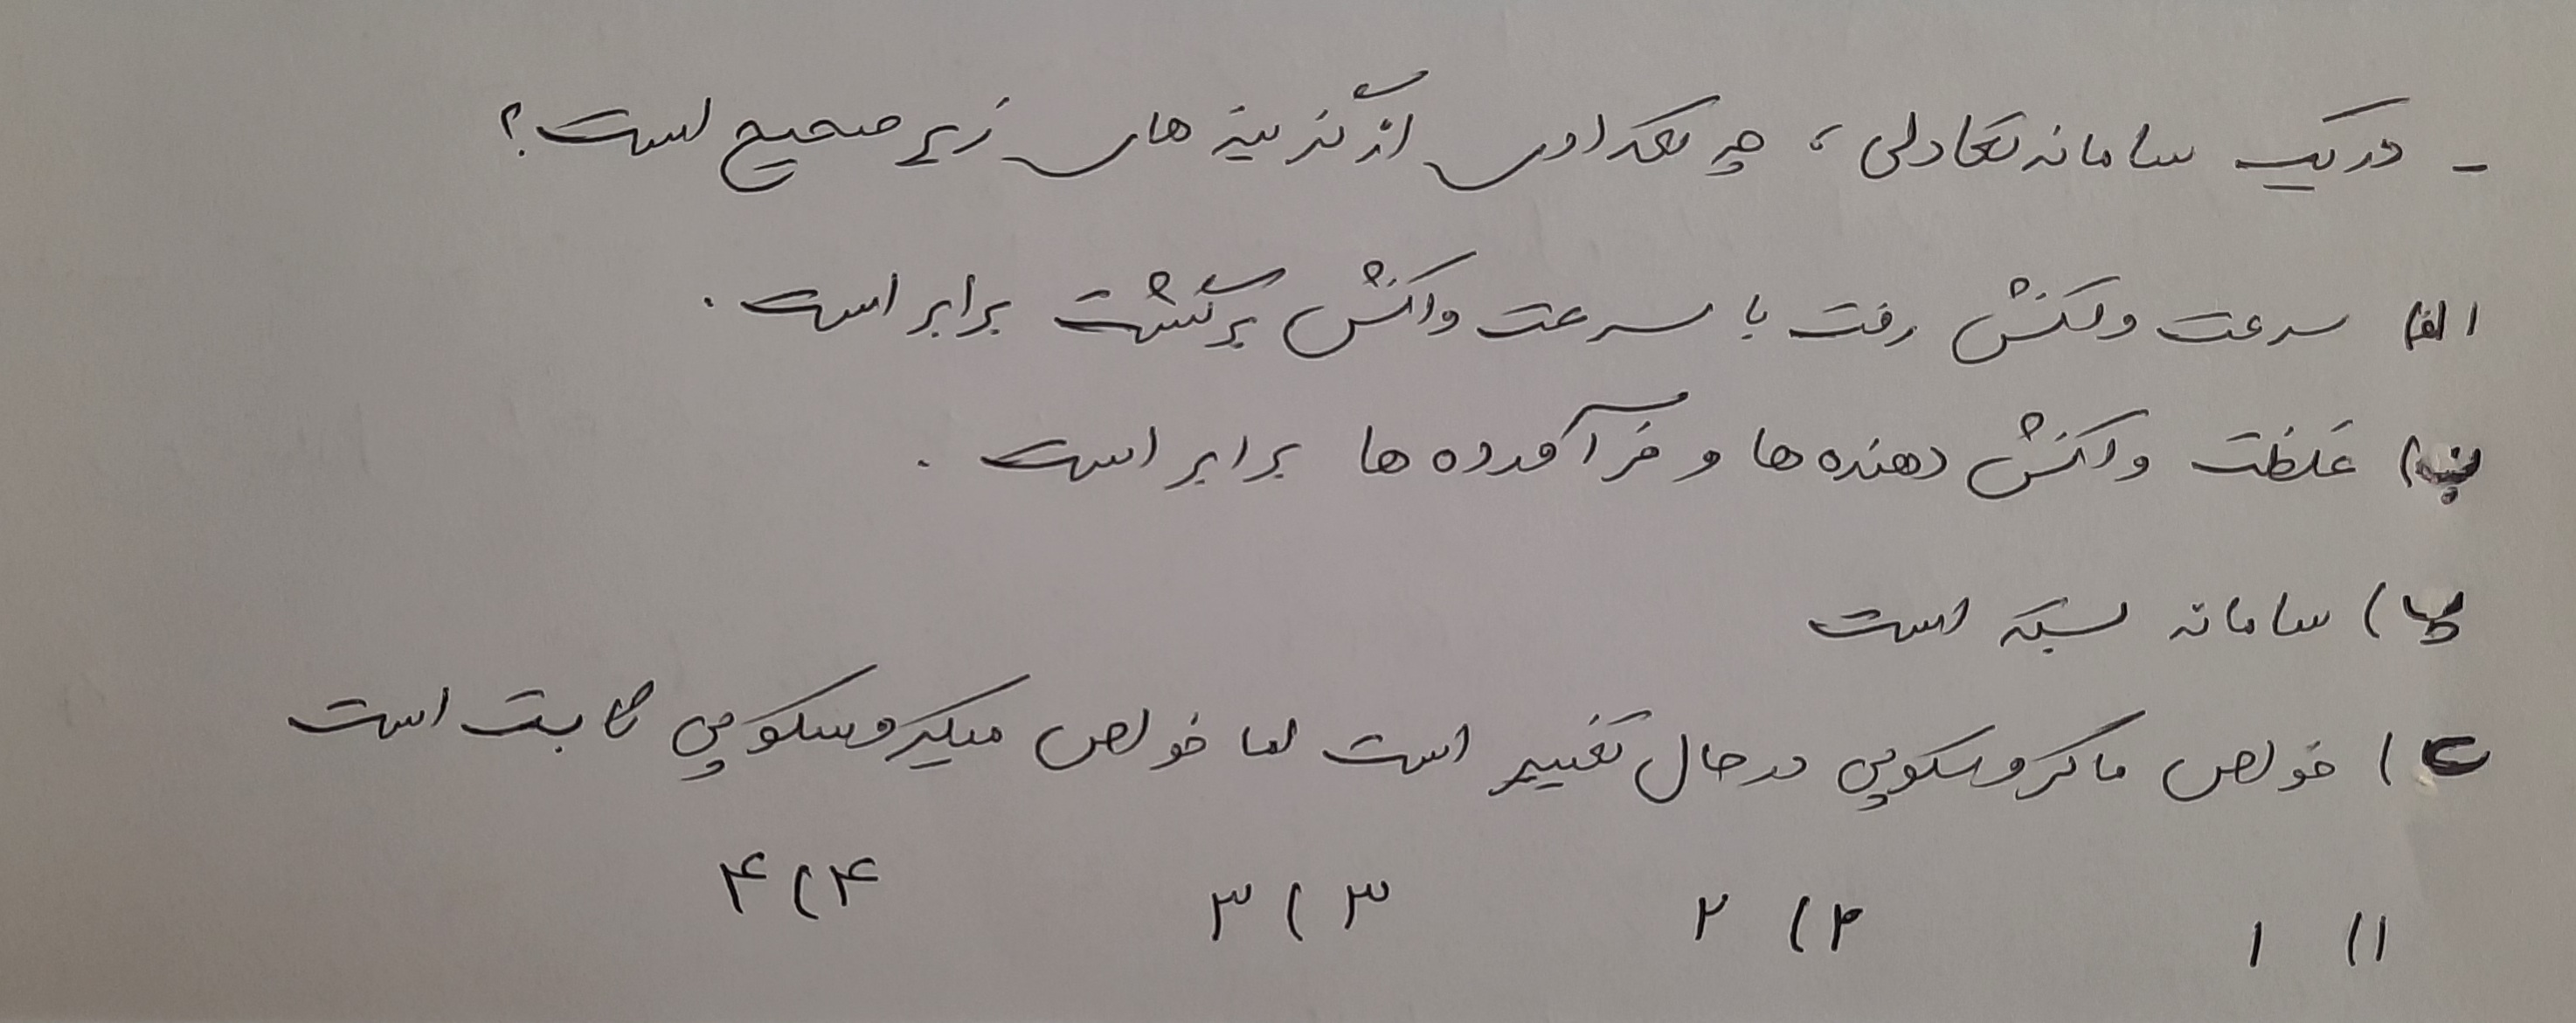 - در یک سامانه تعادلی، چه تعدادی از گزینه های زیر صحیح است؟
الف) سرعت واکنش رفت با سرعت واکنش برگشت برابر است.
ب) غلظت واکنش دهنده ها و فرآورده ها برابر است.
پ) سامانه بسته است
ت) خواص ماکروسکوپی در حال تغییر است اما خواص میکروسکوپی ثابت است
۱) ۱ ۲) ۲ ۳) ۳ ۴) ۴